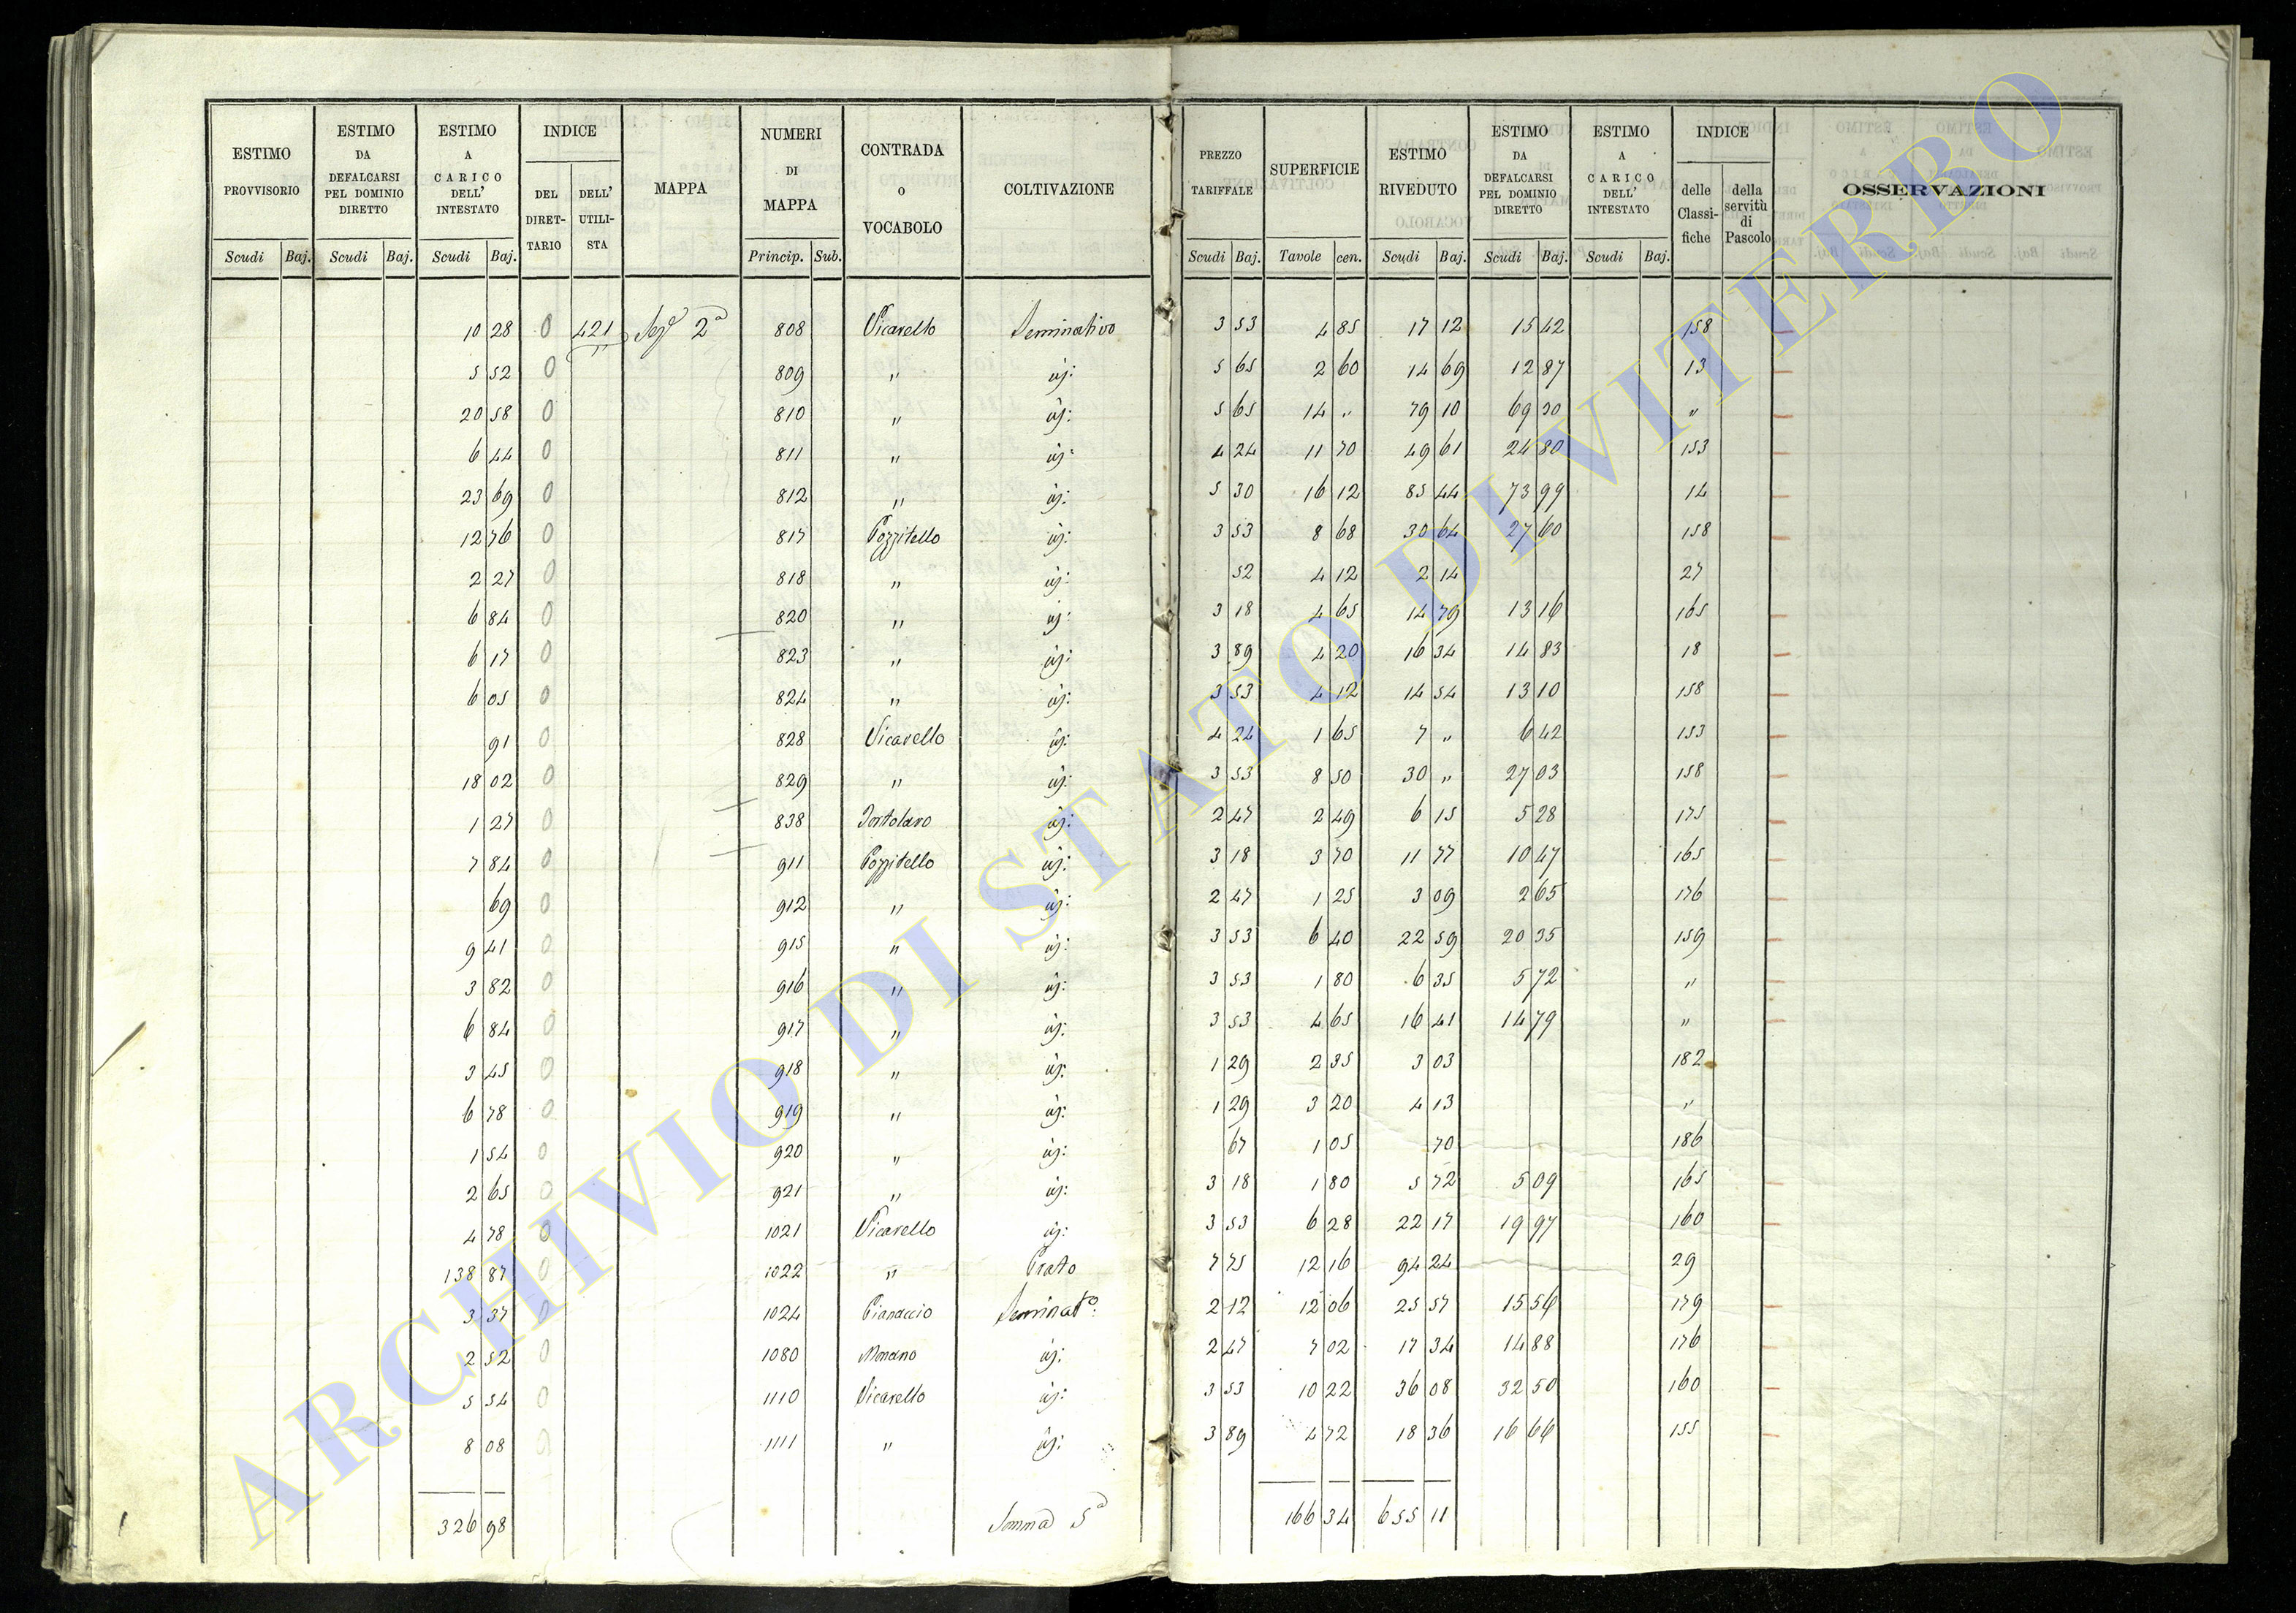 ESTIMO PROVVISORIO | ESTIMO DA DEFALCARSI PEL DOMINIO DIRETTO | ESTIMO A CARICO DELL' INTESTATO | INDICE DEL DIRET-TARIO | DELL' UTILI-STA | MAPPA | NUMERI DI MAPPA | CONTRADA O VOCABOLO | COLTIVAZIONE | PREZZO TARIFFALE | SUPERFICIE | ESTIMO RIVEDUTO | ESTIMO DA DEFALCARSI PEL DOMINIO DIRETTO | ESTIMO A CARICO DELL' INTESTATO | INDICE delle Classi-fiche | della servitù di Pascolo | OSSERVAZIONI
Scudi | Baj. | Scudi | Baj. | Scudi | Baj. | Princip. | Sub. | Scudi | Baj. | Tavole | cen. | Scudi | Baj. | Scudi | Baj. | Scudi | Baj.
10 28 | 0 | 421 | 2ª | 808 | Vicarello | Seminativo | 3 53 | 4 85 | 17 12 | 15 42 | 158
5 52 | 0 | 809 | " | id: | 5 65 | 2 60 | 14 69 | 12 87 | 13
20 58 | 0 | 810 | " | id: | 5 65 | 14 " | 79 10 | 69 30 | "
6 44 | 0 | 811 | " | id: | 4 24 | 11 70 | 49 61 | 24 80 | 153
23 69 | 0 | 812 | " | id: | 5 30 | 16 12 | 85 44 | 73 99 | 14
12 76 | 0 | 817 | Pozzitello | id: | 3 53 | 8 68 | 30 64 | 27 60 | 158
2 27 | 0 | 818 | " | id: | 52 | 4 12 | 2 14 | 27
6 84 | 0 | 820 | " | id: | 3 18 | 4 65 | 14 79 | 13 16 | 165
6 17 | 0 | 823 | " | id: | 3 89 | 4 20 | 16 34 | 14 83 | 18
6 05 | 0 | 824 | " | id: | 3 53 | 4 12 | 14 54 | 13 10 | 158
91 | 0 | 828 | Vicarello | id: | 4 24 | 1 65 | 7 " | 6 42 | 153
18 02 | 0 | 829 | " | id: | 3 53 | 8 50 | 30 " | 27 03 | 158
1 27 | 0 | 838 | id: | 2 47 | 2 49 | 6 15 | 5 28 | 175
7 84 | 0 | 911 | Pozzitello | id: | 3 18 | 3 70 | 11 77 | 10 47 | 165
69 | 0 | 912 | " | id: | 2 47 | 1 25 | 3 09 | 2 65 | 176
9 41 | 0 | 915 | " | id: | 3 53 | 6 40 | 22 59 | 20 35 | 159
3 82 | 0 | 916 | " | id: | 3 53 | 1 80 | 6 35 | 5 72 | "
6 84 | 0 | 917 | " | id: | 3 53 | 4 65 | 16 41 | 14 79 | "
3 45 | 0 | 918 | " | id: | 1 29 | 2 35 | 3 03 | 182
6 78 | 0 | 919 | " | id: | 1 29 | 3 20 | 4 13 | "
1 54 | 0 | 920 | " | id: | 67 | 1 05 | 70 | 186
2 65 | 0 | 921 | " | id: | 3 18 | 1 80 | 5 72 | 5 09 | 165
4 78 | 0 | 1021 | Vicarello | id: | 3 53 | 6 28 | 22 17 | 19 97 | 160
138 87 | 0 | 1022 | " | Prato | 7 75 | 12 16 | 94 24 | 29
3 37 | 0 | 1024 | Pianaccio | Seminatº: | 2 12 | 12 06 | 25 57 | 15 56 | 179
2 52 | 0 | 1080 | id: | 2 47 | 7 02 | 17 34 | 14 88 | 176
5 54 | 0 | 1110 | Vicarello | id: | 3 53 | 10 22 | 36 08 | 32 50 | 160
8 08 | 0 | 1111 | " | id: | 3 89 | 4 72 | 18 36 | 16 66 | 155
326 98 | Somma 5ª | 166 34 | 655 11
ARCHIVIO DI STATO DI VITERBO